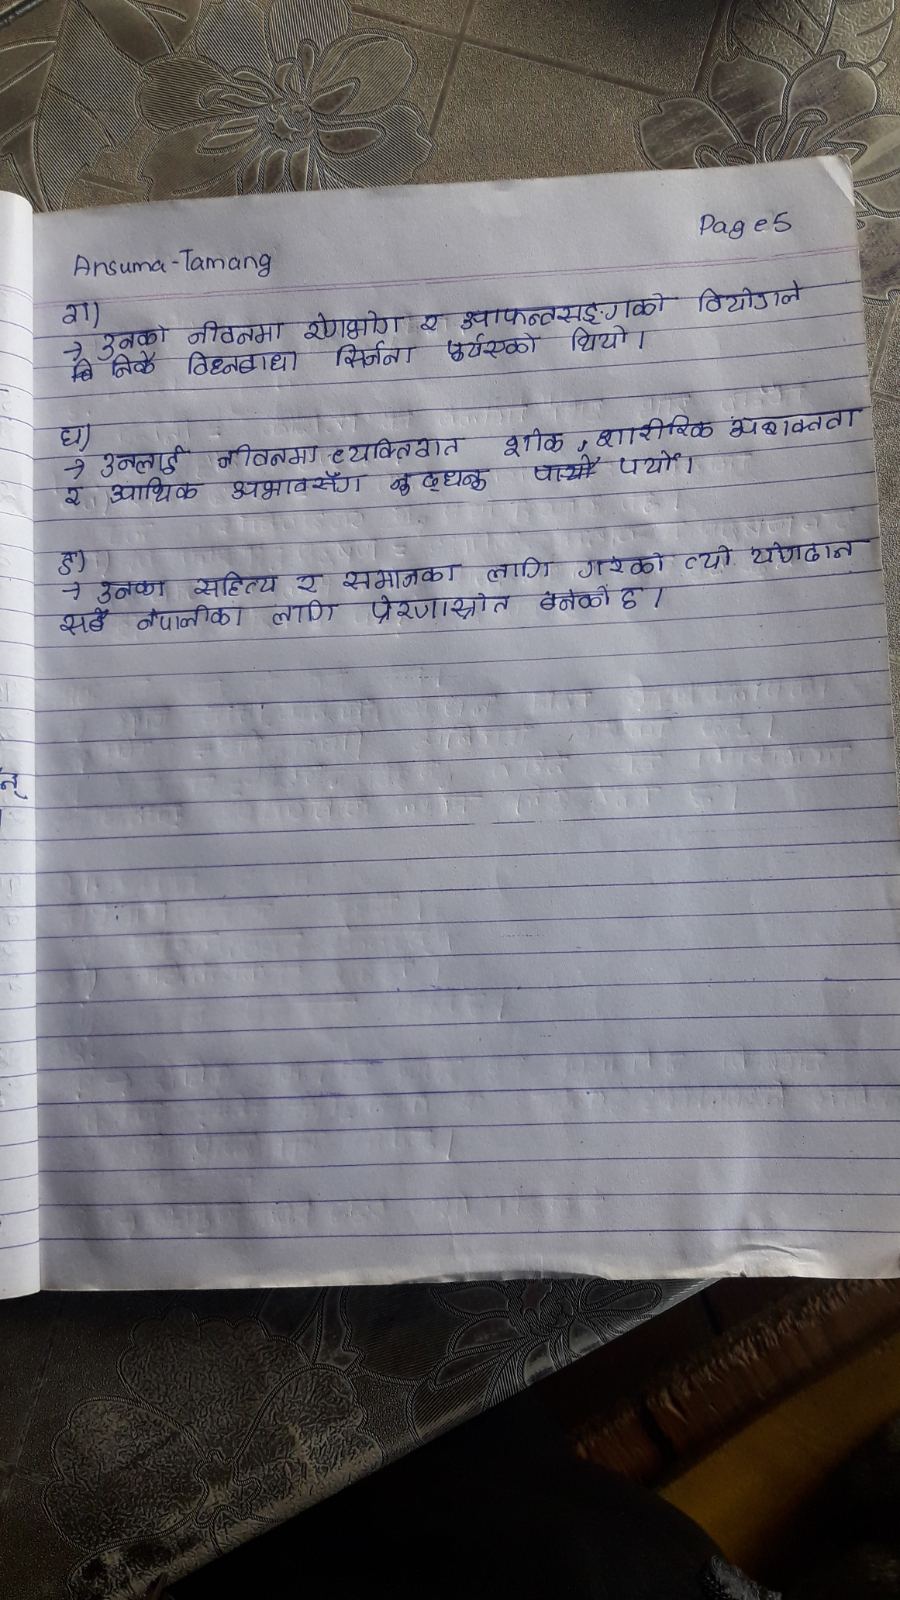 Page 5
Ansuma-Tamang
ग)
→ उनको जीवनमा रोगभोग र आफन्तसङ्गको वियोगले
निकै विघ्नबाधा सिर्जना थियो।
घ)
→ उनलाई जीवनमा व्यक्तिगत शोक, शारीरिक अशक्तता
र आर्थिक अभावसँग जुध्नु पर्यो।
ङ)
→ उनका सहित्य र समाजका लागि गरेको त्यो योगदान
सबै नेपालीका लागि प्रेरणास्रोत बनेको छ।
न्